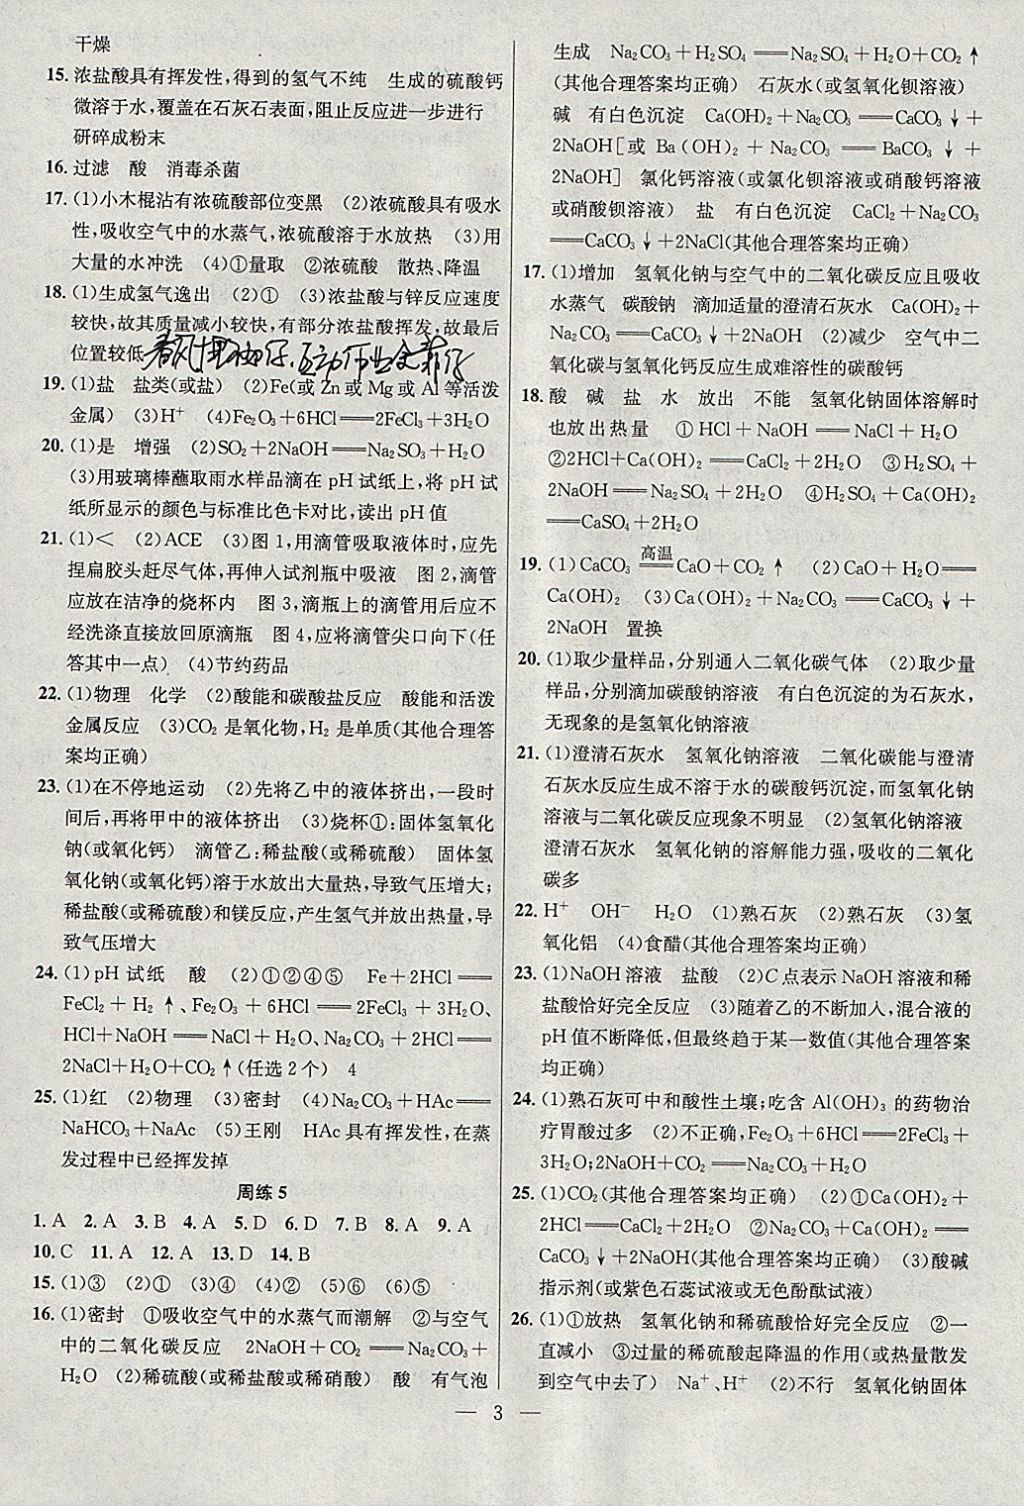 干燥
15. 浓盐酸具有挥发性,得到的氢气不纯　生成的硫酸钙
微溶于水,覆盖在石灰石表面,阻止反应进一步进行
研碎成粉末
16. 过滤　酸　消毒杀菌
17. (1)小木棍沾有浓硫酸部位变黑　(2)浓硫酸具有吸水
性,吸收空气中的水蒸气,浓硫酸溶于水放热　(3)用
大量的水冲洗　(4)①量取　②浓硫酸　散热、降温
18. (1)生成氢气逸出　(2)①　(3)浓盐酸与锌反应速度
较快,故其质量减小较快,有部分浓盐酸挥发,故最后
位置较低
19. (1)盐　盐类(或盐)　(2)Fe(或 Zn 或 Mg 或 Al 等活泼
金属)　(3)H⁺　(4)Fe₂O₃+6HCl══2FeCl₃+3H₂O
20. (1)是　增强　(2)SO₂+2NaOH══Na₂SO₃+H₂O
(3)用玻璃棒蘸取雨水样品滴在 pH 试纸上,将 pH 试
纸所显示的颜色与标准比色卡对比,读出 pH 值
21. (1)<　(2)ACE　(3)图 1,用滴管吸取液体时,应先
捏扁胶头赶尽气体,再伸人试剂瓶中吸液　图 2,滴管
应放在洁净的烧杯内　图 3,滴瓶上的滴管用后应不
经洗涤直接放回原滴瓶　图 4,应将滴管尖口向下(任
答其中一点)　(4)节约药品
22. (1)物理　化学　(2)酸能和碳酸盐反应　酸能和活泼
金属反应　(3)CO₂ 是氧化物,H₂ 是单质(其他合理答
案均正确)
23. (1)在不停地运动　(2)先将乙中的液体挤出,一段时
间后,再将甲中的液体挤出　(3)烧杯①:固体氢氧化
钠(或氧化钙)　滴管乙:稀盐酸(或稀硫酸)　固体氢
氧化钠(或氧化钙)溶于水放出大量热,导致气压增大;
稀盐酸(或稀硫酸)和镁反应,产生氢气并放出热量,导
致气压增大
24. (1)pH 试纸　酸　(2)①②④⑤　Fe+2HCl══
FeCl₂+H₂↑、Fe₂O₃+6HCl══2FeCl₃+3H₂O、
HCl+NaOH══NaCl+H₂O、Na₂CO₃+2HCl══
2NaCl+H₂O+CO₂↑(任选 2 个)　4
25. (1)红　(2)物理　(3)密封　(4)Na₂CO₃+HAc══
NaHCO₃+NaAc　(5)王刚　HAc 具有挥发性,在蒸
发过程中已经挥发掉
周练 5
1. A　2. A　3. B　4. A　5. D　6. D　7. B　8. A　9. A
10. C　11. A　12. A　13. D　14. B
15. (1)③　(2)①　(3)④　(4)②　(5)⑥　(6)⑤
16. (1)密封　①吸收空气中的水蒸气而潮解　②与空气
中的二氧化碳反应　2NaOH+CO₂══Na₂CO₃+
H₂O　(2)稀硫酸(或稀盐酸或稀硝酸)　酸　有气泡
生成　Na₂CO₃+H₂SO₄══Na₂SO₄+H₂O+CO₂↑
(其他合理答案均正确)　石灰水(或氢氧化钡溶液)
碱　有白色沉淀　Ca(OH)₂+Na₂CO₃══CaCO₃↓+
2NaOH[或 Ba(OH)₂+Na₂CO₃══BaCO₃↓+
2NaOH]　氯化钙溶液(或氯化钡溶液或硝酸钙溶液
或硝酸钡溶液)　盐　有白色沉淀　CaCl₂+Na₂CO₃
══CaCO₃↓+2NaCl(其他合理答案均正确)
17. (1)增加　氢氧化钠与空气中的二氧化碳反应且吸收
水蒸气　碳酸钠　滴加适量的澄清石灰水　Ca(OH)₂+
Na₂CO₃══CaCO₃↓+2NaOH　(2)减少　空气中二
氧化碳与氢氧化钙反应生成难溶性的碳酸钙
18. 酸　碱　盐　水　放出　不能　氢氧化钠固体溶解时
也放出热量　①HCl+NaOH══NaCl+H₂O
②2HCl+Ca(OH)₂══CaCl₂+2H₂O　③H₂SO₄+
2NaOH══Na₂SO₄+2H₂O　④H₂SO₄+Ca(OH)₂
══CaSO₄+2H₂O
19. (1)CaCO₃ 高温══ CaO+CO₂↑　(2)CaO+H₂O══
Ca(OH)₂　(3)Ca(OH)₂+Na₂CO₃══CaCO₃↓+
2NaOH　置换
20. (1)取少量样品,分别通人二氧化碳气体　(2)取少量
样品,分别滴加碳酸钠溶液　有白色沉淀的为石灰水,
无现象的是氢氧化钠溶液
21. (1)澄清石灰水　氢氧化钠溶液　二氧化碳能与澄清
石灰水反应生成不溶于水的碳酸钙沉淀,而氢氧化钠
溶液与二氧化碳反应现象不明显　(2)氢氧化钠溶液
澄清石灰水　氢氧化钠的溶解能力强,吸收的二氧化
碳多
22. H⁺　OH⁻　H₂O　(1)熟石灰　(2)熟石灰　(3)氢
氧化铝　(4)食醋(其他合理答案均正确)
23. (1)NaOH 溶液　盐酸　(2)C 点表示 NaOH 溶液和稀
盐酸恰好完全反应　(3)随着乙的不断加人,混合液的
pH 值不断降低,但最终趋于某一数值(其他合理答案
均正确)
24. (1)熟石灰可中和酸性土壤;吃含 Al(OH)₃ 的药物治
疗胃酸过多　(2)不正确,Fe₂O₃+6HCl══2FeCl₃+
3H₂O;2NaOH+CO₂══Na₂CO₃+H₂O
25. (1)CO₂(其他合理答案均正确)　(2)①Ca(OH)₂+
2HCl══CaCl₂+2H₂O　②Na₂CO₃+Ca(OH)₂══
CaCO₃↓+2NaOH(其他合理答案均正确)　(3)酸碱
指示剂(或紫色石蕊试液或无色酚酞试液)
26. (1)①放热　氢氧化钠和稀硫酸恰好完全反应　②一
直减小　③过量的稀硫酸起降温的作用(或热量散发
到空气中去了)　Na⁺、H⁺　(2)不行　氢氧化钠固体
— 3 —